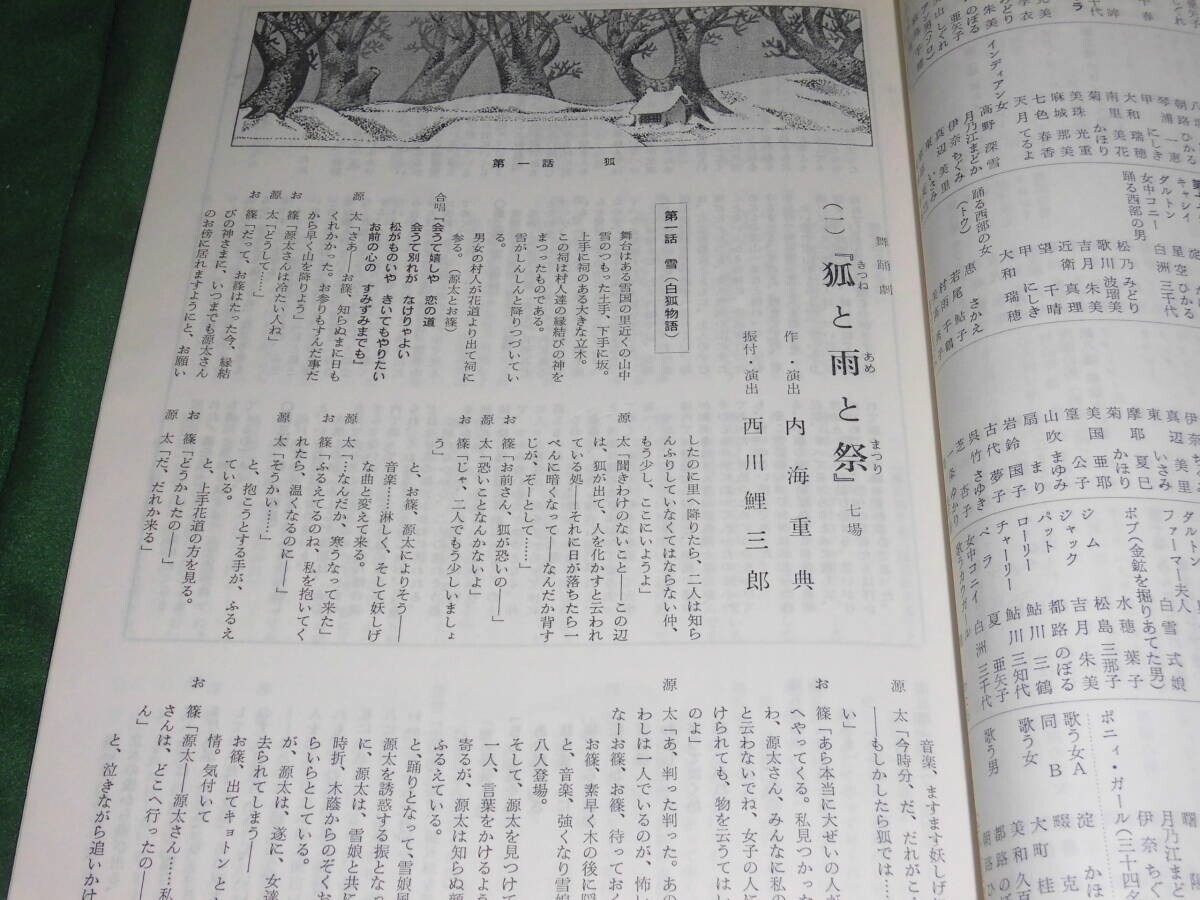 第一話　狐
舞踊劇
(一)『狐と雨と祭』七場
きつね
あめ
まつり
作・演出　内海重典
振付・演出　西川鯉三郎
第一話　雪（白狐物語）
舞台はある雪国の里近くの山中
雪のつもった土手、下手に坂。
上手に祠のある大きな立木。
この祠は村人達の縁結びの神を
まつったものである。
雪がしんしんと降りつづいてい
る。
男女の村人が花道より出て祠に
参る。（源太とお篠）
合唱「会うて嬉しや　恋の道
会うて別れが　なけりゃよい
松がものいや　きいてもやりたい
お前の心の　すみずみまでも」
源　太「さあ――お篠、知らぬまに日も
くれかかった。お参りもすんだ事だ
から早く山を降りよう」
お　篠「源太さんは冷たい人ね」
源　太「どうして……」
お　篠「だって、お篠はたった今、縁結
びの神さまに、いつまでも源太さん
のお傍に居れますようにと、お願い
したのに里へ降りたら、二人は知ら
んふりしていなくてはならない仲、
もう少し、ここにいようよ」
源　太「聞きわけのないこと――この辺
は、狐が出て、人を化かすと云われ
ている処――それに日が落ちたら一
ぺんに暗くなって――なんだか背す
じが、ぞーとして……」
お　篠「お前さん、狐が恐いの――」
源　太「恐いことなんかないよ」
お　篠「じゃ、二人でもう少しいましょ
う」
と、お篠、源太によりそう――
音楽……淋しく、そして妖しげ
な曲と変えて来る。
源　太「…なんだか、寒うなって来た」
お　篠「ふるえてるのね、私を抱いてく
れたら、温くなるのに――」
源　太「そうかい……」
と、抱こうとする手が、ふるえ
ている。
と、上手花道の方を見る。
お　篠「どうかしたの――」
源　太「だ、だれか来る」
音楽、ますます妖しげ
源　太「今時分、だ、だれがこん
――もしかしたら狐では…
い」
お　篠「あら本当に大ぜいの人が
へやってくる。私見つかった
わ、源太さん、みんなに私の
と云わないでね、女子の人に
けられても、物を云うてはい
のよ」
源　太「あ、判った判った。あの
わしは一人でいるのが、怖い
なーお篠、お篠、待っておく
お篠、素早く木の後に隠
と、音楽、強くなり雪娘
八人登場。
そして、源太を見つけて
一人、言葉をかけるよう
寄るが、源太は知らぬ顔
ふるえている。
と、踊りとなって、雪娘風
源太を誘惑する振となっ
に、源太は、雪娘と共に
時折、木蔭からのぞくお
らいらとしている。
が、源太は、遂に、女達
去られてしまう――
お篠、出てキョトンと
情。気付いて
お　篠「源太――源太さん……私
さんは、どこへ行ったの――
ん」
と、泣きながら追いかけ
インディアン女
高野深雪
天月てるよ
七色春香
麻城那美
美珠光重
菊かほり
南里美花
大和瑞穂
甲にしき
琴浦一恵
朝路ひかる
月乃江まどか
伊奈ちぐみ
真辺美里
東いさみ
踊る西部の女
（トウ）
大和瑞穂
甲にしき
望千晴
近衛真理
吉月朱美
歌川波瑠美
松乃みどり
踊る西部の男
女中コニー
ダルトン
キャシイ
白洲三千代
星空ひかる
恵さかえ
若尾鮎子
芝杏子
呉竹さゆき
古代夢子
岩鈴国子
扇まり
山吹まゆみ
篁公子
美国亜耶
菊かほり
摩耶夏巳
東いさみ
真辺美里
歌うカウガール
女中コニイ
ベラ
チャーリー
ローリー
パット
ジャック
ジム
ボブ（金鉱を掘りあてた男）
ファーマー夫人
ダルトン
白洲三千代
夏亜矢子
鮎川三知代
鮎川三鶴
都路のぼる
吉月朱美
松島三那子
水穂葉子
白雪式娘
歌う男
歌う女
同　B
歌う女A
ボニィ・ガール（三十四ダ
美和久百
大町桂
畷克
淀かほ
伊奈ちぐ
月乃江まど